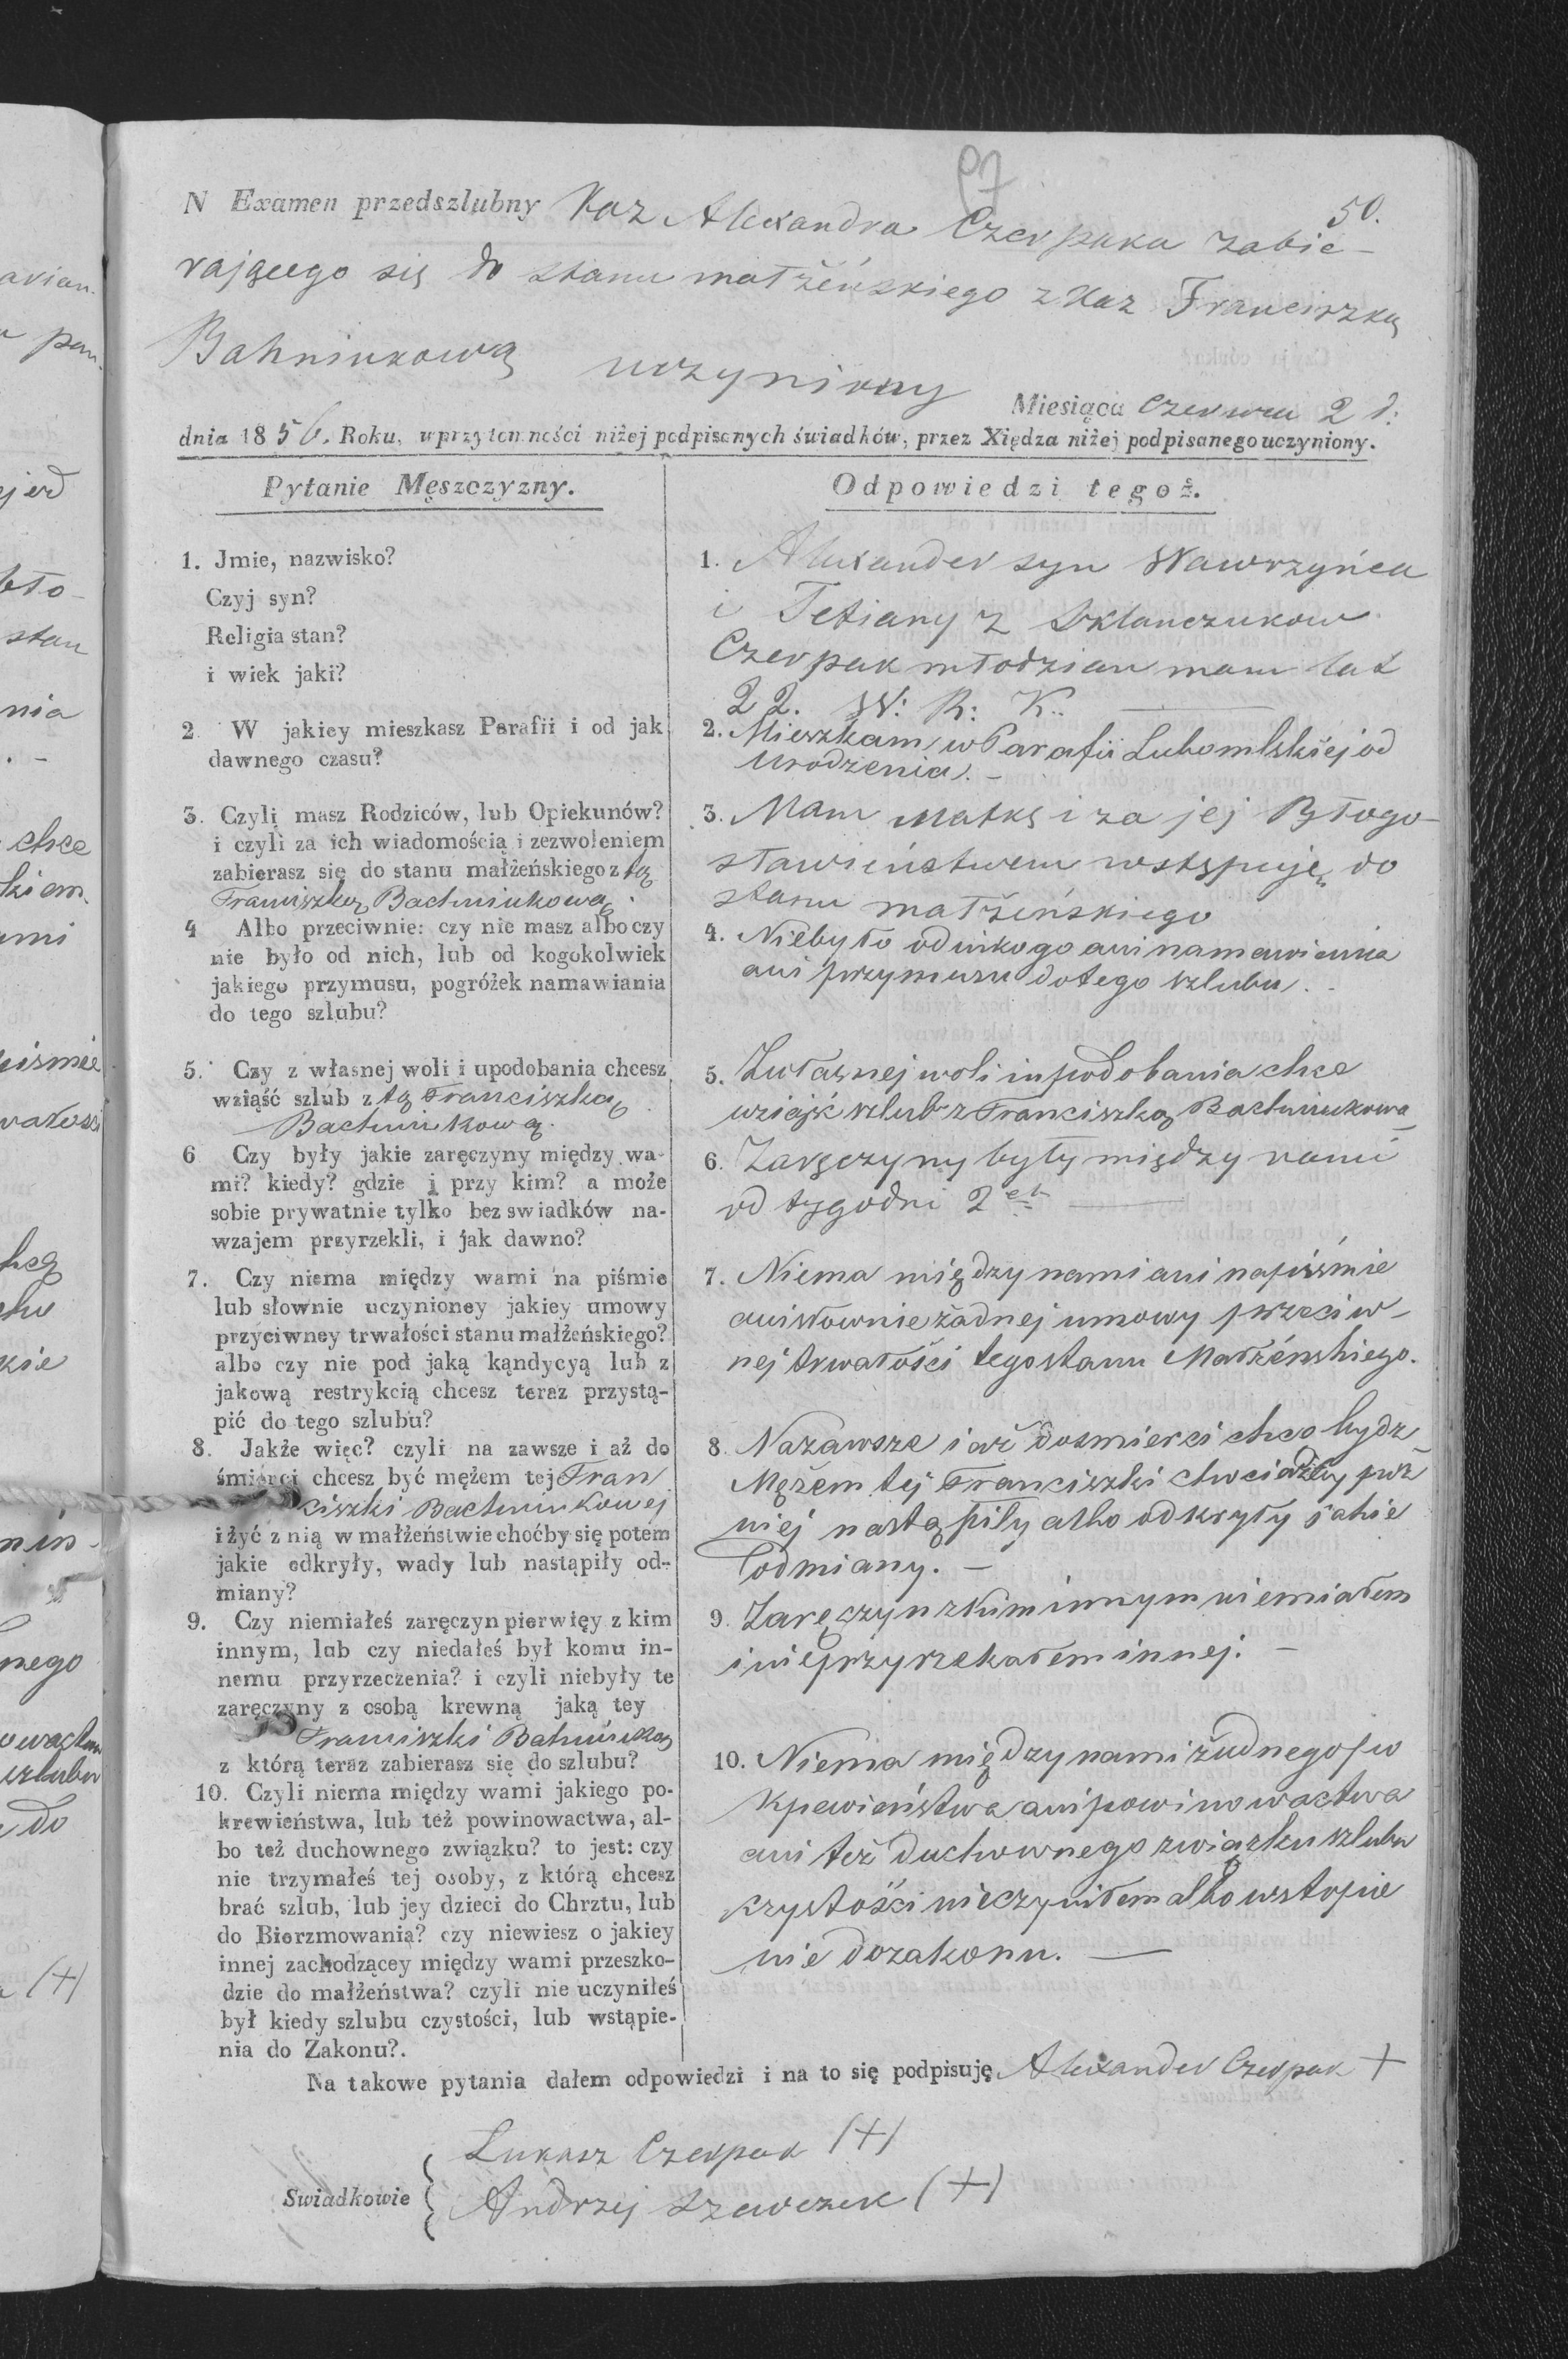 97
50.
N Examen przedszlubny Kaz Alexandra Czerpaka zabie-
rającego się do stanu małżeńskiego z Kaz Franciszką
Bahniukową uczyniony
Miesiąca Czerwca 2 d:
dnia 1856. Roku, w przytomności niżej podpisanych świadków, przez Xiędza niżej podpisanego uczyniony.
Pytanie Męszczyzny.
1. Jmie, nazwisko?
Czyj syn?
Religia stan?
i wiek jaki?
2. W jakiey mieszkasz Parafii i od jak
dawnego czasu?
3. Czyli masz Rodziców, lub Opiekunów?
i czyli za ich wiadomością i zezwoleniem
zabierasz się do stanu małżeńskiego z tą
Franciszką Bachniukową.
4 Albo przeciwnie: czy nie masz albo czy
nie było od nich, lub od kogokolwiek
jakiego przymusu, pogróżek namawiania
do tego szlubu?
5. Czy z własnej woli i upodobania chcesz
wziąść szlub z tą Franciszką
Bachniukową.
6 Czy były jakie zaręczyny między wa-
mi? kiedy? gdzie i przy kim? a może
sobie prywatnie tylko bez swiadków na-
wzajem przyrzekli, i jak dawno?
7. Czy niema między wami na piśmie
lub słownie uczynioney jakiey umowy
przyciwney trwałości stanu małżeńskiego?
albo czy nie pod jaką kąndycyą lub z
jakową restrykcią chcesz teraz przystą-
pić do tego szlubu?
8. Jakże więc? czyli na zawsze i aż do
śmierci chcesz być mężem tej Fran
ciszki Bachniukowej
i żyć z nią w małżeństwie choćby się potem
jakie odkryły, wady lub nastąpiły od-
miany?
9. Czy niemiałeś zaręczyn pierwięy z kim
innym, lub czy niedałeś był komu in-
nemu przyrzeczenia? i czyli niebyły te
zaręczyny z osobą krewną jaką tey
Franciszki Bahniuką
z którą teraz zabierasz się do szlubu?
10. Czyli niema między wami jakiego po-
krewieństwa, lub też powinowactwa, al-
bo też duchownego związku? to jest: czy
nie trzymałeś tej osoby, z którą chcesz
brać szlub, lub jey dzieci do Chrztu, lub
do Bierzmowania? czy niewiesz o jakiey
innej zachodzącey między wami przeszko-
dzie do małżeństwa? czyli nie uczyniłeś
był kiedy szlubu czystości, lub wstąpie-
nia do Zakonu?.
Odpowiedzi tegoż.
1. Alexander syn Wawrzyńca
i Tetiany z Szklanczukow
Czerpak młodzian mam lat
22. W: R: K.
2. Mieszkam w Parafii Lubomlskiej od
urodzenia. -
3. Mam Matkę i za jej Błogo-
sławieństwem wstępuję do
stanu małżeńskiego
4. Niebyło odnikogo ani namawiania
ani przymusu do tego szlubu.
5. Zwłasnej woli i upodobania chce
wziąść szlub z Franciszką Bachniukową
6. Zaręczyny były między nami
od tygodni 2ch
7. Niema między nami ani napiśmie
ani słownie żadnej umowy przeciw-
nej trwałości tego stanu Małżeńskiego.
8. Nazawsze i aż dosmierci chce bydz
Mężem tej Franciszki chociażby puz
niej nastąpiły albo odkryły jakie
odmiany. -
9. Zaręczyn z kim innym niemiałem
i nieprzyrzekałem innej. -
10. Niema między nami żadnego po
krewieństwa ani powinowactwa
ani też duchownego związku szlubu
czystości nieczyniłem albo wstąpie
nie dozakonu.
Na takowe pytania dałem odpowiedzi i na to się podpisuję Alexander Czerpak +
Łukasz Czerpak (+)
Swiadkowie
Andrzej Szewczuk (+)